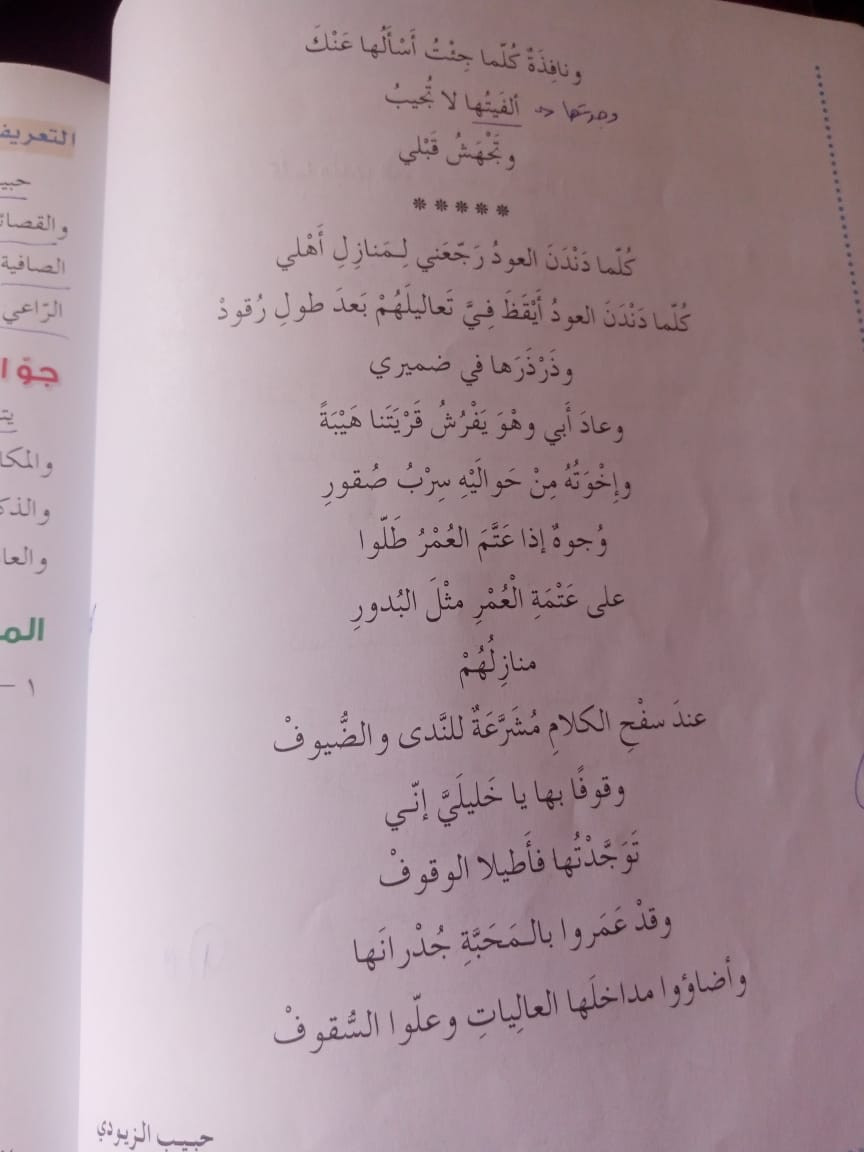 ونافِذَةٌ كُلّما جِئْتُ أَسْأَلُها عَنْكَ
ألفَيتُها لا تُجيبُ <- وجدتها
وتَجْهَشُ قَبْلي
*****
كُلّما دَنْدَنَ العودُ رَجّعَني لِـمَنازِلِ أَهْلي
كُلّما دَنْدَنَ العودُ أَيْقَظَ فِيَّ تَعاليلَهُمْ بَعدَ طولِ رُقودْ
وذَرْذَرَها في ضميري
وعادَ أَبي وهْوَ يَفْرُشُ قَرْيَتَنا هَيْبَةً
وإِخْوَتُهُ مِنْ حَوالَيْهِ سِرْبُ صُقورِ
وُجوهٌ إذا عَتَّمَ العُمْرُ طَلّوا
على عَتْمَةِ الْعُمْرِ مثْلَ البُدورِ
منازِلُهُمْ
عندَ سفْحِ الكلامِ مُشَرَّعَةٌ للنَّدى والضُّيوفْ
وقوفًا بها يا خَليلَيَّ إنّـي
تَوَجَّدْتُها فأَطيلا الوقوفْ
وقدْ عَمَروا بالـمَحَبَّةِ جُدْرانَها
وأضاؤوا مداخلَها العالِياتِ وعلّوا السُّقوفْ
حبيب الزيودي
التعريف
حبي
والقصائ
الصافية
الرّاعي
جوّ ا
يت
والمكا
والذك
والعا
الم
١ -